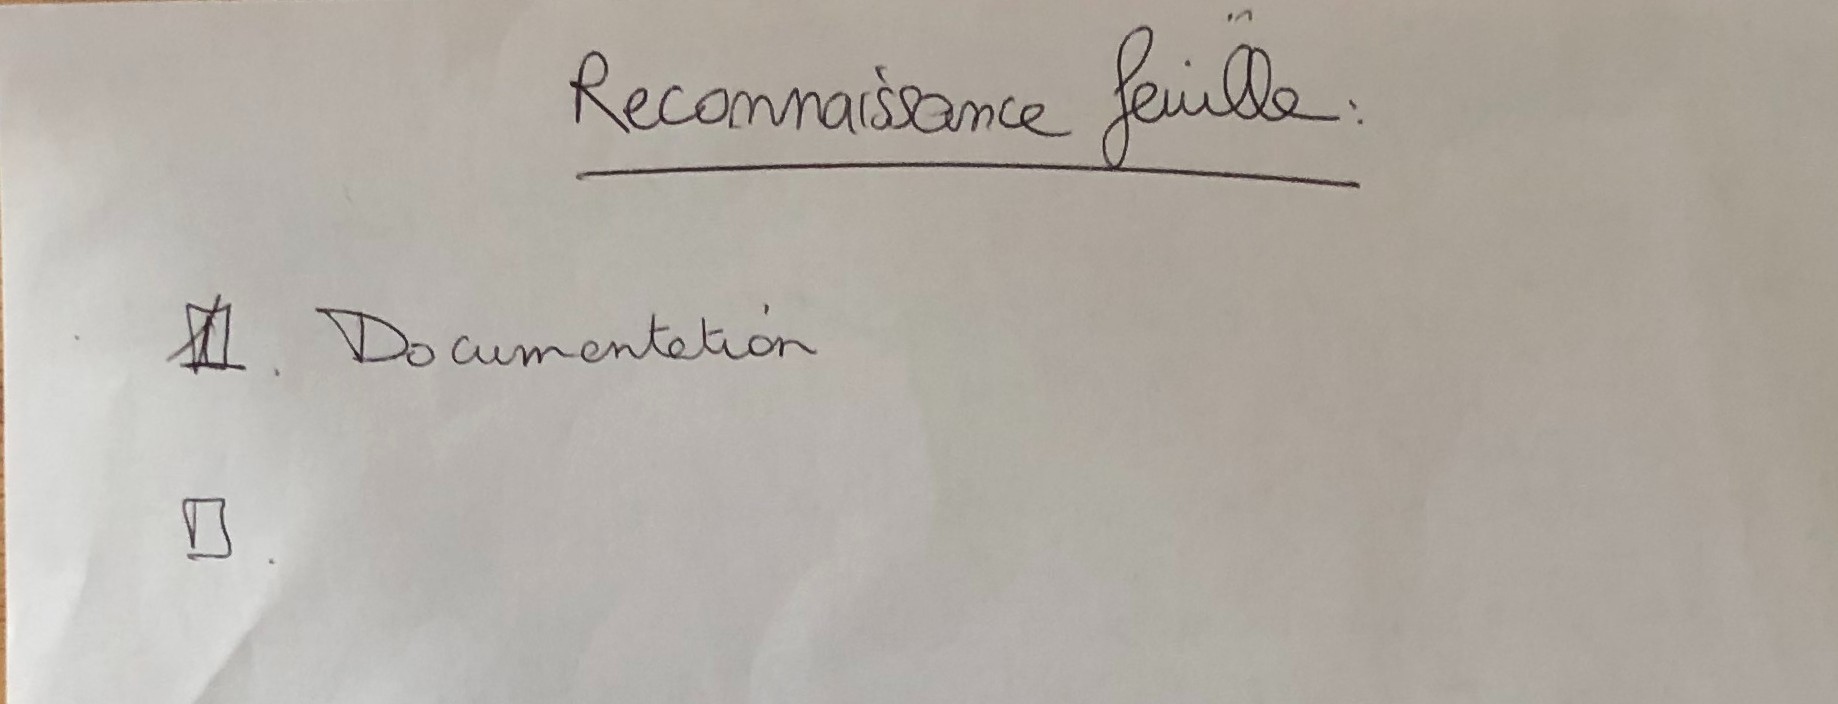 Reconnaissance feuille :
☒. Documentation
☐.